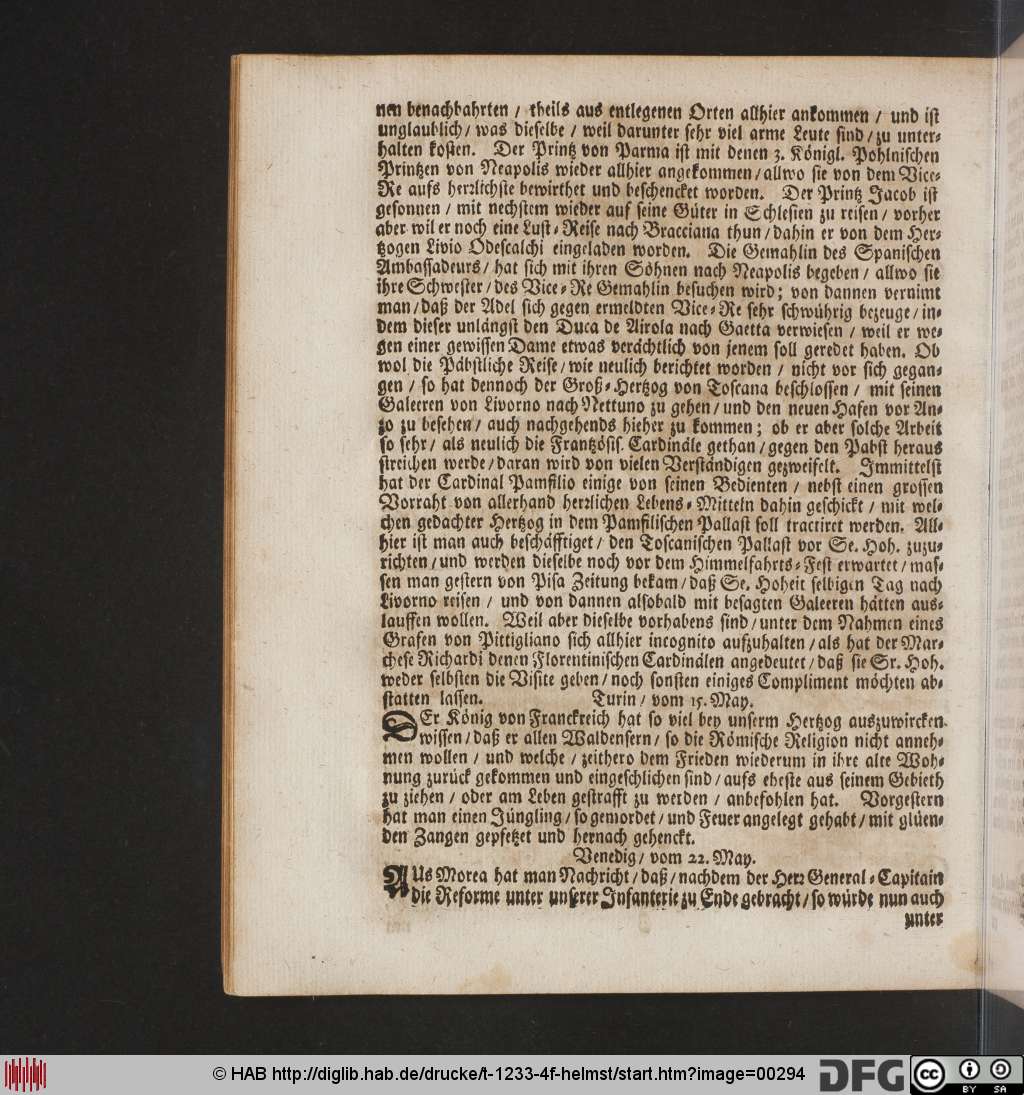 nen benachbahrten / theils aus entlegenen Orten allhier ankommen / und ist
unglaublich / was dieselbe / weil darunter sehr viel arme Leute sind / zu unter-
halten kosten. Der Printz von Parma ist mit denen 3. Königl. Pohlnischen
Printzen von Neapolis wieder allhier angekommen / allwo sie von dem Vice-
Re aufs herrlichste bewirthet und beschencket worden. Der Printz Jacob ist
gesonnen / mit nechstem wieder auf seine Güter in Schlesien zu reisen / vorher
aber wil er noch eine Lust-Reise nach Bracciana thun / dahin er von dem Her-
tzogen Livio Odescalchi eingeladen worden. Die Gemahlin des Spanischen
Ambassadeurs / hat sich mit ihren Söhnen nach Neapolis begeben / allwo sie
ihre Schwester / des Vice-Re Gemahlin besuchen wird; von dannen vernimt
man / daß der Adel sich gegen ermeldten Vice-Re sehr schwührig bezeuge / in-
dem dieser unlängst den Duca de Airola nach Gaetta verwiesen / weil er we-
gen einer gewissen Dame etwas verächtlich von jenem soll geredet haben. Ob
wol die Päbstliche Reise / wie neulich berichtet worden / nicht vor sich gegan-
gen / so hat dennoch der Groß-Hertzog von Toscana beschlossen / mit seinen
Galeeren von Livorno nach Nettuno zu gehen / und den neuen Hafen vor An-
zo zu besehen / auch nachgehends hieher zu kommen; ob er aber solche Arbeit
so sehr / als neulich die Frantzösis. Cardinäle gethan / gegen den Pabst heraus
streichen werde / daran wird von vielen Verständigen gezweifelt. Immittelst
hat der Cardinal Pamfilio einige von seinen Bedienten / nebst einen grossen
Vorraht von allerhand herrlichen Lebens-Mitteln dahin geschickt / mit wel-
chen gedachter Hertzog in dem Pamfilischen Pallast soll tractiret werden. All-
hier ist man auch beschäfftiget / den Toscanischen Pallast vor Se. Hoh. zuzu-
richten / und werden dieselbe noch vor dem Himmelfahrts-Fest erwartet / mas-
sen man gestern von Pisa Zeitung bekam / daß Se. Hoheit selbigen Tag nach
Livorno reisen / und von dannen alsobald mit besagten Galeeren hätten aus-
lauffen wollen. Weil aber dieselbe vorhabens sind / unter dem Nahmen eines
Grafen von Pittigliano sich allhier incognito aufzuhalten / als hat der Mar-
chese Richardi denen Florentinischen Cardinälen angedeutet / daß sie Sr. Hoh.
weder selbsten die Visite geben / noch sonsten einiges Compliment möchten ab-
statten lassen. Turin / vom 15. May.
DEr König von Franckreich hat so viel bey unserm Hertzog auszuwircken
wissen / daß er allen Waldensern / so die Römische Religion nicht anneh-
men wollen / und welche / zeithero dem Frieden wiederum in ihre alte Woh-
nung zurück gekommen und eingeschlichen sind / aufs eheste aus seinem Gebieth
zu ziehen / oder am Leben gestrafft zu werden / anbefohlen hat. Vorgestern
hat man einen Jüngling / so gemordet / und Feuer angelegt gehabt / mit glüen-
den Zangen gepfetzet und hernach gehenckt.
Venedig / vom 22. May.
AUs Morea hat man Nachricht / daß / nachdem der Herr General-Capitain
die Reforme unter unserer Infanterie zu Ende gebracht / so würde nun auch
unter
© HAB http://diglib.hab.de/drucke/t-1233-4f-helmst/start.htm?image=00294
DFG
cc
BY SA